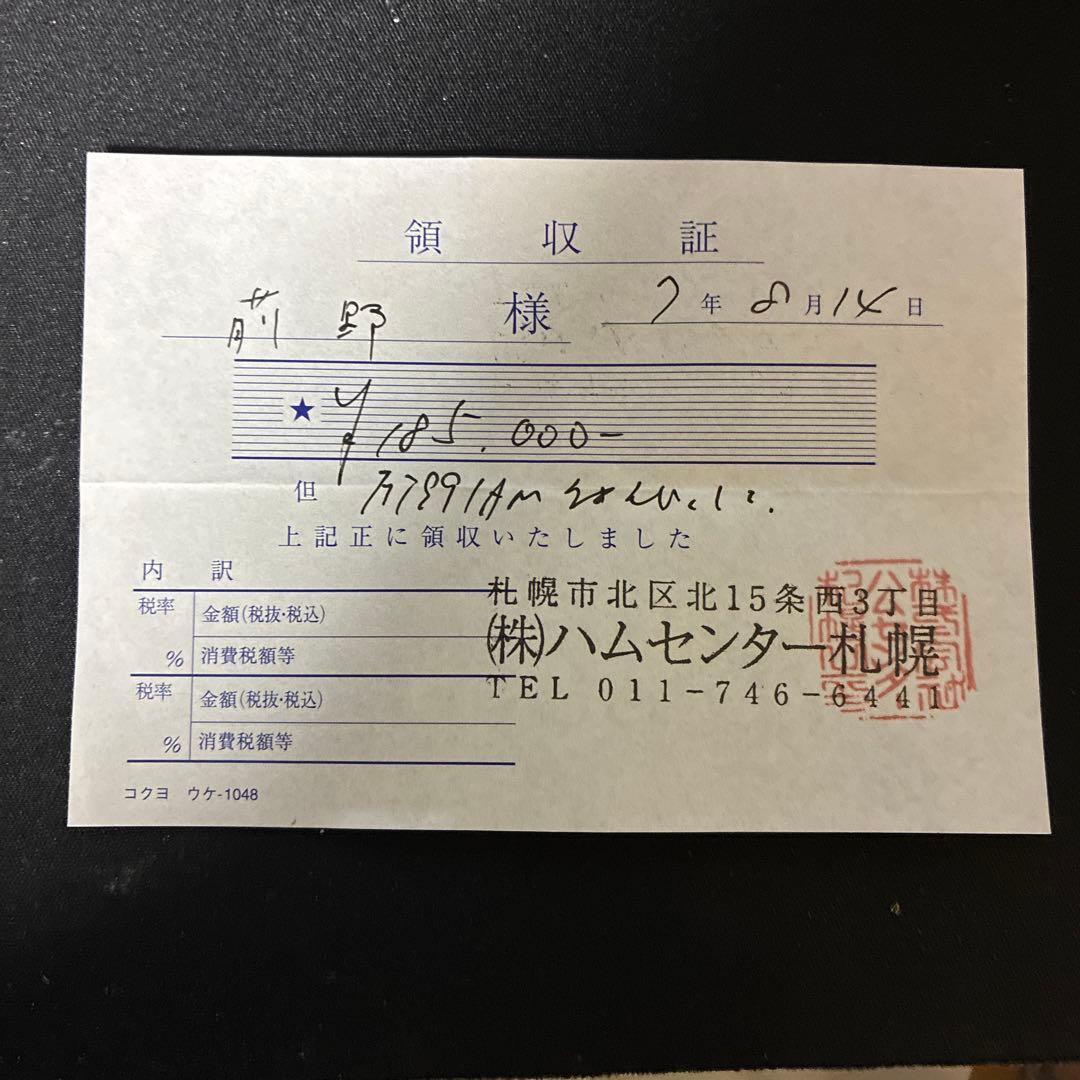 領収証
前野 様 7年8月14日
★ ¥185,000-
但 FT991AM
上記正に領収いたしました
内訳
税率 金額(税抜・税込)
% 消費税額等
税率 金額(税抜・税込)
% 消費税額等
札幌市北区北15条西3丁目
㈱ハムセンター札幌
TEL 011-746-6441
コクヨ ウケ-1048